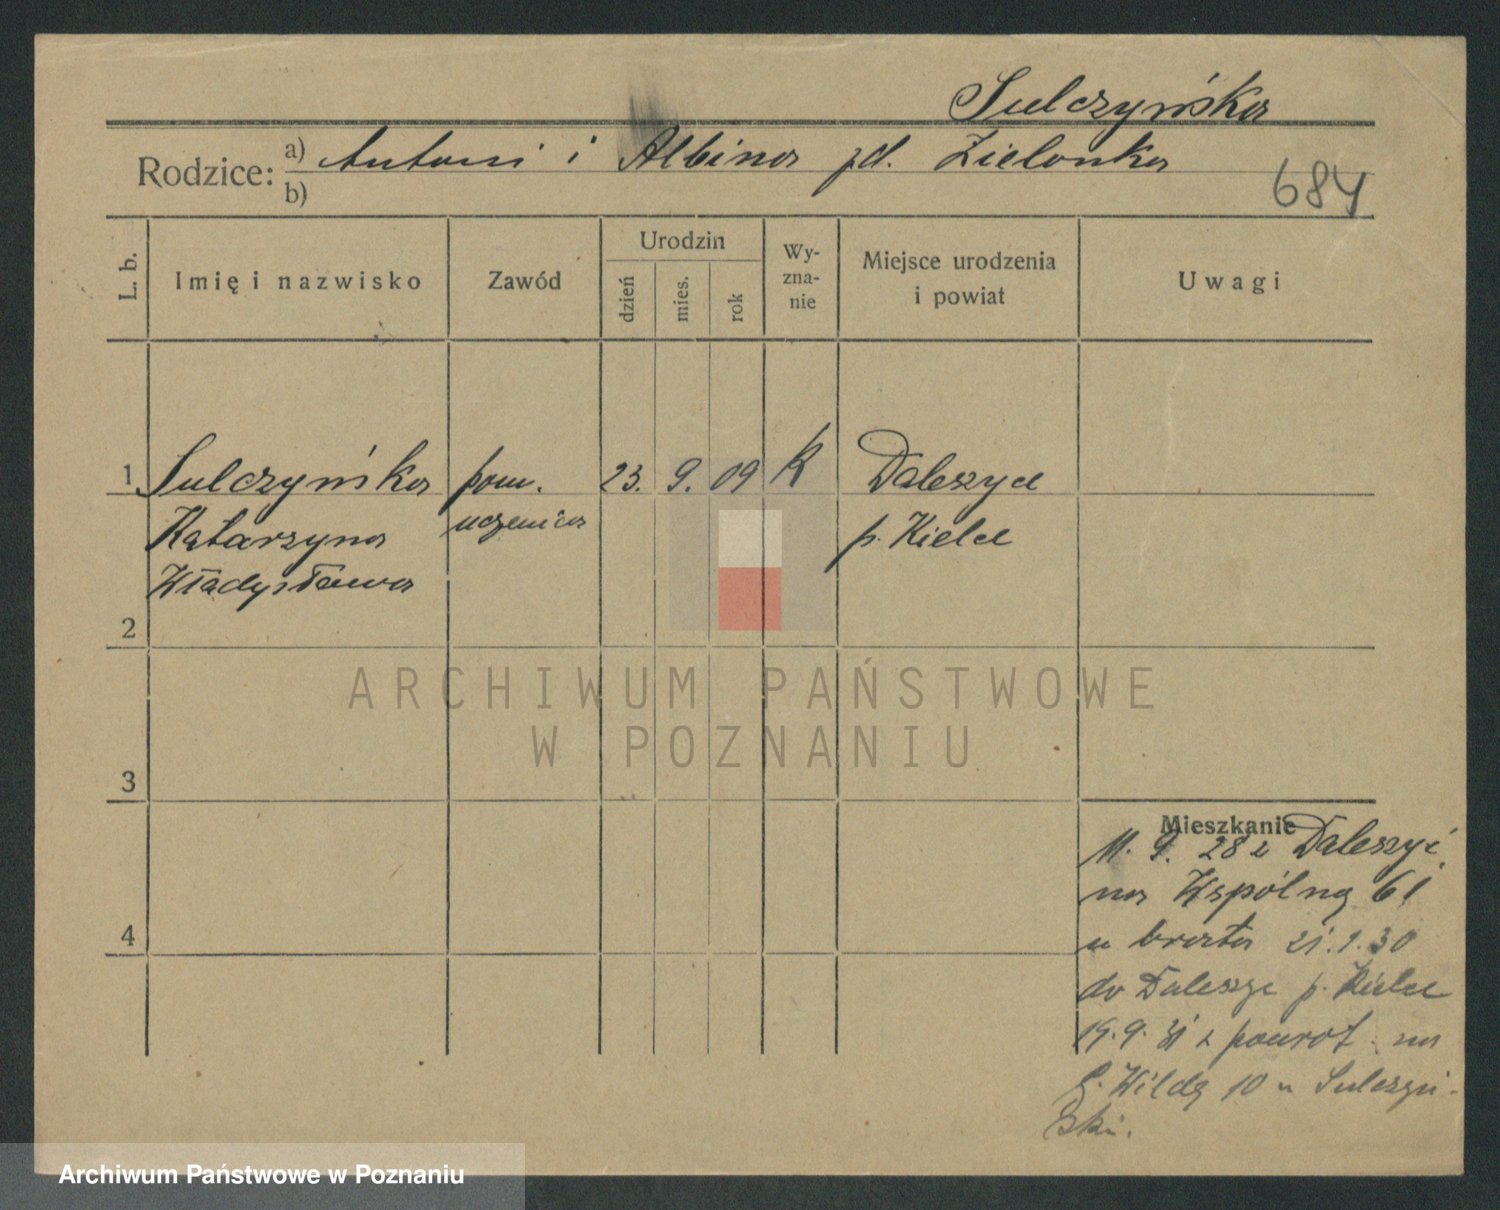 Sulczyńska
Rodzice: a) Antoni i Albina zd. Zielonka
b)
684
L. b.
Imię i nazwisko
Zawód
Urodzin
dzień
mies.
rok
Wy-
zna-
nie
Miejsce urodzenia
i powiat
Uwagi
1 Sulczyńska pom. 23. 9. 09 K Daleszyce
Katarzyna uczenica p. Kielce
Władysława
2
3
4
Mieszkanie
11. 9. 28 z Daleszyc
na Wspólną 61
u brata 21.1.30
do Daleszyc p. Kielce
19.9.31 z powrot. na
G. Wildą 10 u Sulczyń-
ski.
ARCHIWUM PAŃSTWOWE
W POZNANIU
Archiwum Państwowe w Poznaniu